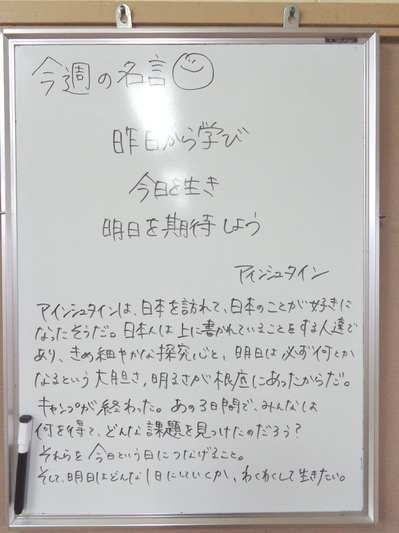 今週の名言
昨日から学び
今日を生き
明日を期待しよう
アインシュタイン
アインシュタインは、日本を訪れて、日本のことが好きに
なったそうだ。日本人は上に書かれていることをする人達で
あり、きめ細やかな探究心と、明日は必ず何とか
なるという大胆さ、明るさが根底にあったからだ。
キャンプが終わった。あの3日間で、みんなは
何を得て、どんな課題を見つけたのだろう?
それらを今日という日につなげること。
そして、明日はどんな1日にしていくか、わくわくして生きたい。